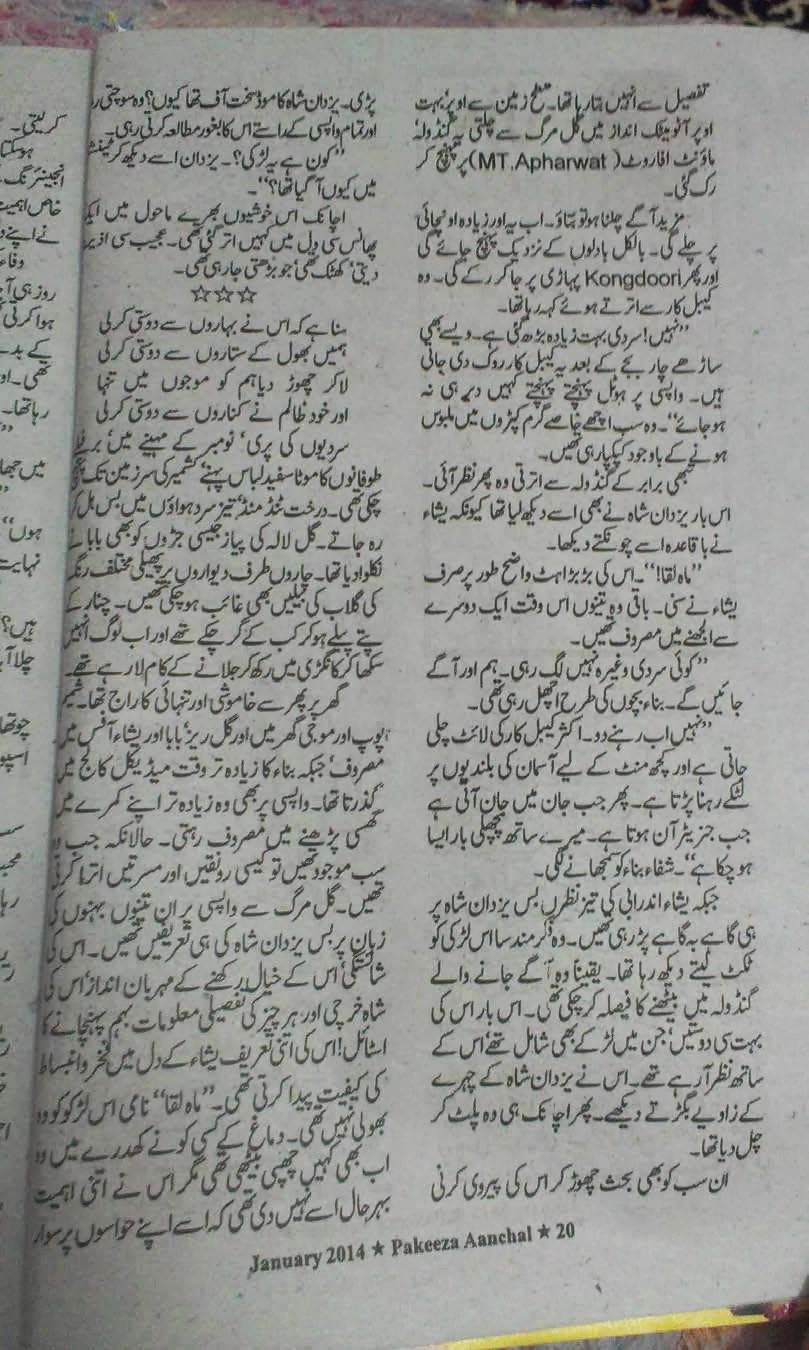 تفصیل سے انہیں بتا رہا تھا۔ سطح زمین سے اوپر بہت
اوپر آٹومیٹک انداز میں گل مرگ سے چلتی یہ گنڈولہ
ماؤنٹ افاروٹ (MT.Apharwat) پر پہنچ کر
رک گئی۔
مزید آگے چلنا ہو تو بتاؤ۔ اب یہ اور زیادہ اونچائی
پر چلے گی۔ بالکل بادلوں کے نزدیک پہنچ جائے گی
اور پھر Kongdoori پہاڑی پر جا کر رکے گی۔ وہ
کیبل کار سے اترتے ہوئے کہہ رہا تھا۔
”نہیں! سردی بہت زیادہ بڑھ گئی ہے۔ ویسے بھی
ساڑھے چار بجے کے بعد یہ کیبل کار روک دی جاتی
ہیں۔ واپسی پر ہوٹل پہنچتے پہنچتے کہیں دیر ہی نہ
ہو جائے“۔ وہ سب اچھے خاصے گرم کپڑوں میں ملبوس
ہونے کے باوجود کپکپا رہی تھیں۔
تبھی برابر کے گنڈولہ سے اترتی وہ پھر نظر آئی۔
اس بار یزدان شاہ نے بھی اسے دیکھ لیا تھا کیونکہ یشاء
نے باقاعدہ اسے چونکتے دیکھا۔
”ماہ لقا!“۔ اس کی بڑبڑاہٹ واضح طور پر صرف
یشاء نے سنی۔ باقی وہ تینوں اس وقت ایک دوسرے
سے الجھنے میں مصروف تھیں۔
”کوئی سردی وغیرہ نہیں لگ رہی۔ ہم اور آگے
جائیں گے۔ بناء بچوں کی طرح اچھل رہی تھی۔
”نہیں اب رہنے دو۔ اکثر کیبل کار کی لائٹ چلی
جاتی ہے اور کچھ منٹ کے لیے آسمان کی بلندیوں پر
لٹکے رہنا پڑتا ہے۔ پھر جب جان میں جان آتی ہے
جب جنریٹر آن ہوتا ہے۔ میرے ساتھ پچھلی بار ایسا
ہو چکا ہے“۔ شفاء بناء کو سمجھانے لگی۔
جبکہ یشاء اندرابی کی تیز نظریں بس یزدان شاہ پر
ہی گاہے بہ گاہے پڑ رہی تھیں۔ وہ فکرمند سا اس لڑکی کو
ٹکٹ لیتے دیکھ رہا تھا۔ یقیناً وہ آگے جانے والے
گنڈولہ میں بیٹھنے کا فیصلہ کر چکی تھی۔ اس بار اس کی
بہت سی دوستیں جن میں لڑکے بھی شامل تھے اس کے
ساتھ نظر آ رہے تھے۔ اس نے یزدان شاہ کے چہرے
کے زاویے بگڑتے دیکھے۔ پھر اچانک ہی وہ پلٹ کر
چل دیا تھا۔
ان سب کو بھی بحث چھوڑ کر اس کی پیروی کرنی
پڑی۔ یزدان شاہ کا موڈ سخت آف تھا کیوں؟ وہ سوچتی
اور تمام واپسی کے راستے اس کا بغور مطالعہ کرتی رہی۔
”کون ہے یہ لڑکی؟۔ یزدان اسے دیکھ کر ٹینشن
میں کیوں آ گیا تھا؟“۔
اچانک اس خوشیوں بھرے ماحول میں ایک
پھانس سی دل میں کہیں اتر گئی تھی۔ عجیب سی اذیت
دیتی کھٹک تھی جو بڑھتی جا رہی تھی۔
☆☆☆
سنا ہے کہ اس نے بہاروں سے دوستی کرلی
ہمیں بھول کے ستاروں سے دوستی کرلی
لاکر چھوڑ دیا ہم کو موجوں میں تنہا
اور خود ظالم نے کناروں سے دوستی کرلی
سردیوں کی پری‘ نومبر کے مہینے میں‘ برفیلے
طوفانوں کا موٹا سفید لباس پہنے‘ کشمیر کی سرزمین تک پہنچ
چکی تھی۔ درخت ٹنڈ منڈ‘ تیز سرد ہواؤں میں بس ہل کر
رہ جاتے۔ گل لالہ کی پیاز جیسی جڑوں کو بھی بابا نے
نکلوا دیا تھا۔ چاروں طرف دیواروں پر پھیلی مختلف رنگ
کی گلاب کی بیلیں بھی غائب ہو چکی تھیں۔ چنار کے
پتے پیلے ہو کر کب کے گر چکے تھے اور اب لوگ انہیں
سکھا کر کانگڑی میں رکھ کر جلانے کے کام لا رہے تھے۔
گھر پر پھر سے خاموشی اور تنہائی کا راج تھا۔ شمیم
پوپ اور موجی گھر میں اور گل ریز‘ بابا اور یشاء آفس میں
مصروف‘ جبکہ بناء کا زیادہ تر وقت میڈیکل کالج میں
گذرتا تھا۔ واپسی پر بھی وہ زیادہ تر اپنے کمرے میں
گھسی پڑھنے میں مصروف رہتی۔ حالانکہ جب وہ
سب موجود تھیں تو کیسی رونقیں اور مسرتیں اترا کرتی
تھیں۔ گل مرگ سے واپسی پر ان تینوں بہنوں کی
زبان پر بس یزدان شاہ کی ہی تعریفیں تھیں۔ اس کی
شائستگی‘ اس کے خیال رکھنے کے مہربان انداز‘ اس کی
شاہ خرچی اور ہر چیز کی تفصیلی معلومات بہم پہنچانے کا
اسٹائل! اس کی اتنی تعریف یشاء کے دل میں فخر و انبساط
کی کیفیت پیدا کرتی تھی۔ ”ماہ لقا“ نامی اس لڑکی کو وہ
بھولی نہیں تھی۔ دماغ کے کسی کونے کھدرے میں وہ
اب بھی کہیں چھپی بیٹھی تھی مگر اس نے اتنی اہمیت
بہرحال اسے نہیں دی تھی کہ اسے اپنے حواسوں پر سوار
January 2014 ★ Pakeeza Aanchal ★ 20